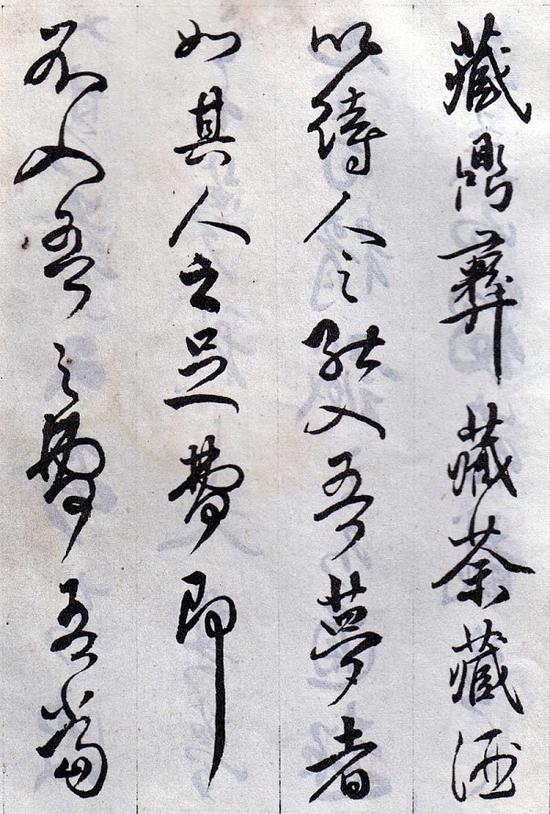 藏鼎彝藏茶藏酒
以待人之能入吾夢者
如其人之足夢即
不入吾之夢吾當